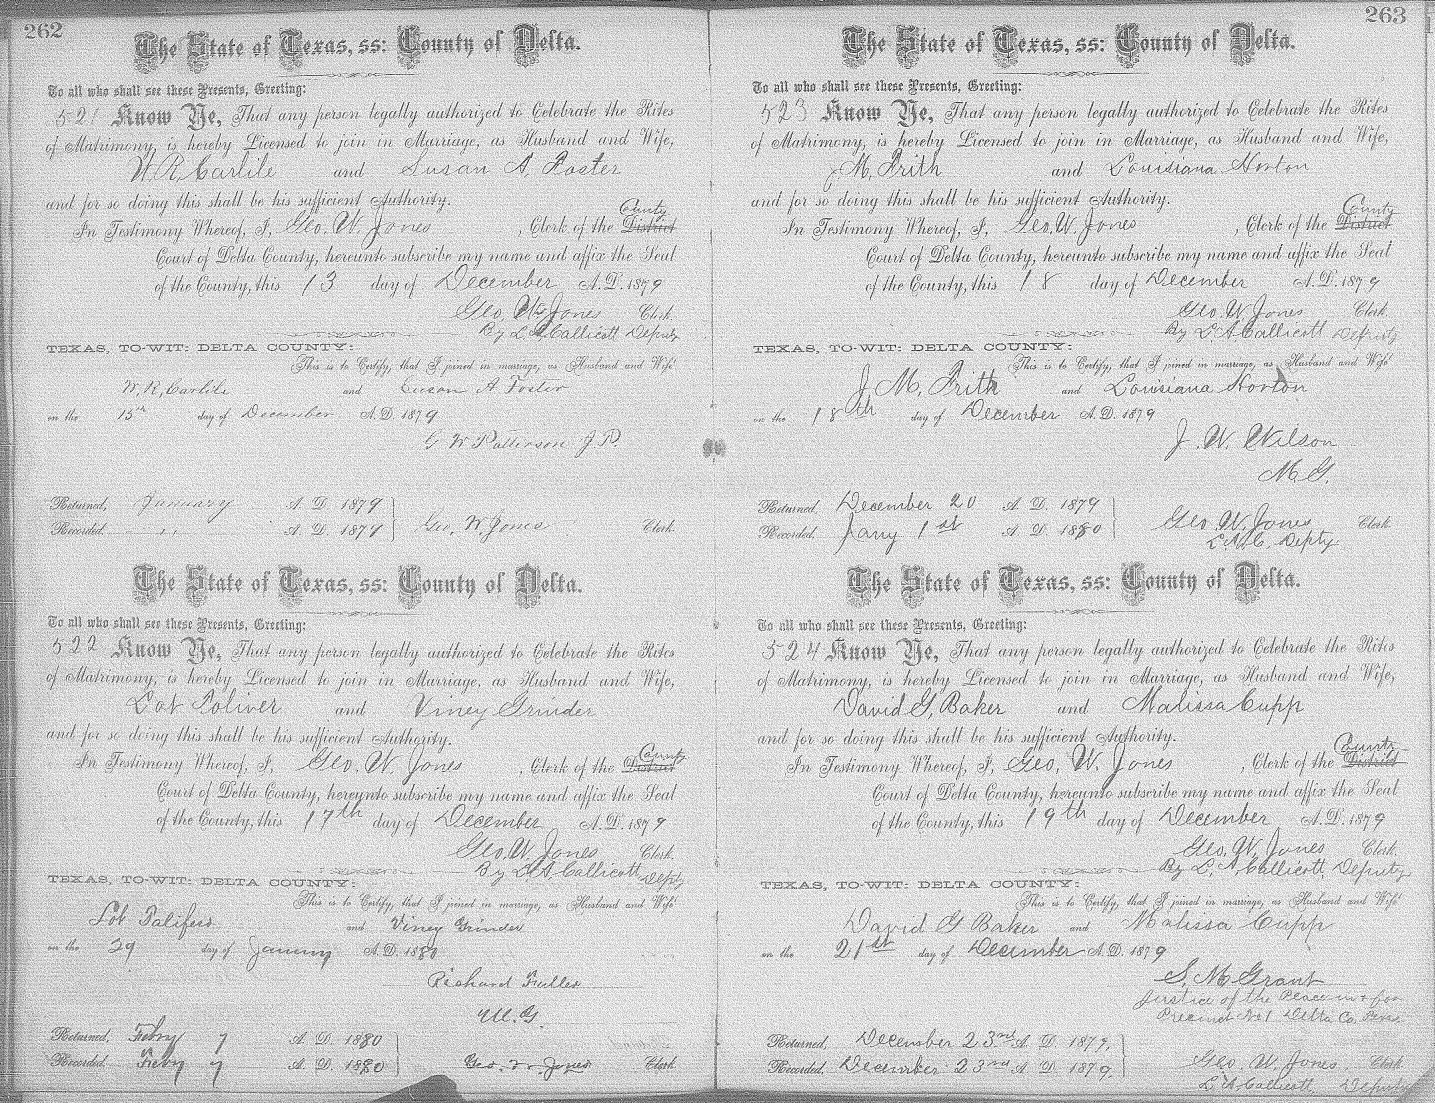 262
The State of Texas, ss: County of Delta.
To all who shall see these Presents, Greeting:
521 Know Ye, That any person legally authorized to Celebrate the Rites
of Matrimony, is hereby Licensed to join in Marriage, as Husband and Wife,
W. R. Carlile and Susan A. Foster
and for so doing this shall be his sufficient Authority.
County
In Testimony Whereof, I, Geo. W. Jones, Clerk of the District
Court of Delta County, hereunto subscribe my name and affix the Seal
of the County, this 13 day of December A. D. 1879
Geo. W. Jones Clerk.
By L. A. Callicott Deputy
TEXAS, TO-WIT: DELTA COUNTY:
This is to Certify, that I joined in marriage, as Husband and Wife
W. R. Carlile and Susan A Foster
on the 15th day of December A. D. 1879
G W Patterson J. P.
Returned, January A. D. 1879
Recorded. " A. D. 1879 Geo. W Jones Clerk.
The State of Texas, ss: County of Delta.
To all who shall see these Presents, Greeting:
522 Know Ye, That any person legally authorized to Celebrate the Rites
of Matrimony, is hereby Licensed to join in Marriage, as Husband and Wife,
Lot Toliver and Viney Grinder
and for so doing this shall be his sufficient Authority.
County
In Testimony Whereof, I, Geo. W. Jones, Clerk of the District
Court of Delta County, hereunto subscribe my name and affix the Seal
of the County, this 17th day of December A. D. 1879
Geo. W. Jones Clerk.
By L. A. Callicott Depty
TEXAS, TO-WIT: DELTA COUNTY:
This is to Certify, that I joined in marriage, as Husband and Wife
Lot and Viney Grinder
on the 29 day of January A. D. 1880
Richard Fuller
M. G.
Returned, Febry 7 A. D. 1880
Recorded. Febry 7 A. D. 1880 Geo. W. Jones Clerk
263
The State of Texas, ss: County of Delta.
To all who shall see these Presents, Greeting:
523 Know Ye, That any person legally authorized to Celebrate the Rites
of Matrimony, is hereby Licensed to join in Marriage, as Husband and Wife,
J. M. Frith and Louisiana Horton
and for so doing this shall be his sufficient Authority.
County
In Testimony Whereof, I, Geo. W. Jones, Clerk of the District
Court of Delta County, hereunto subscribe my name and affix the Seal
of the County, this 18 day of December A. D. 1879
Geo. W. Jones Clerk.
By L. A Callicott Deputy
TEXAS, TO-WIT: DELTA COUNTY:
This is to Certify, that I joined in marriage, as Husband and Wife
J. M. Frith and Louisiana Horton
on the 18th day of December A. D. 1879
J. W. Wilson
M. G.
Returned, December 20 A. D. 1879
Recorded. Jany 1st A. D. 1880 Geo. W. Jones Clerk
L. A. C. Depty
The State of Texas, ss: County of Delta.
To all who shall see these Presents, Greeting:
524 Know Ye, That any person legally authorized to Celebrate the Rites
of Matrimony, is hereby Licensed to join in Marriage, as Husband and Wife,
David G. Baker and Malissa Cupp
and for so doing this shall be his sufficient Authority.
County
In Testimony Whereof, I, Geo, W. Jones, Clerk of the District
Court of Delta County, hereunto subscribe my name and affix the Seal
of the County, this 19th day of December A. D. 1879
Geo. W. Jones Clerk.
By L. A. Callicott, Deputy
TEXAS, TO-WIT: DELTA COUNTY:
This is to Certify, that I joined in marriage, as Husband and Wife
David G Baker and Malissa Cupp
on the 21st day of December A. D. 1879
S. M. Grant
Justice of the Peace in & for
Precinct No 1 Delta Co. Texas
Returned, December 23rd A. D. 1879.
Recorded. December 23rd A. D. 1879. Geo. W. Jones Clerk
L. A Callicott, Deputy